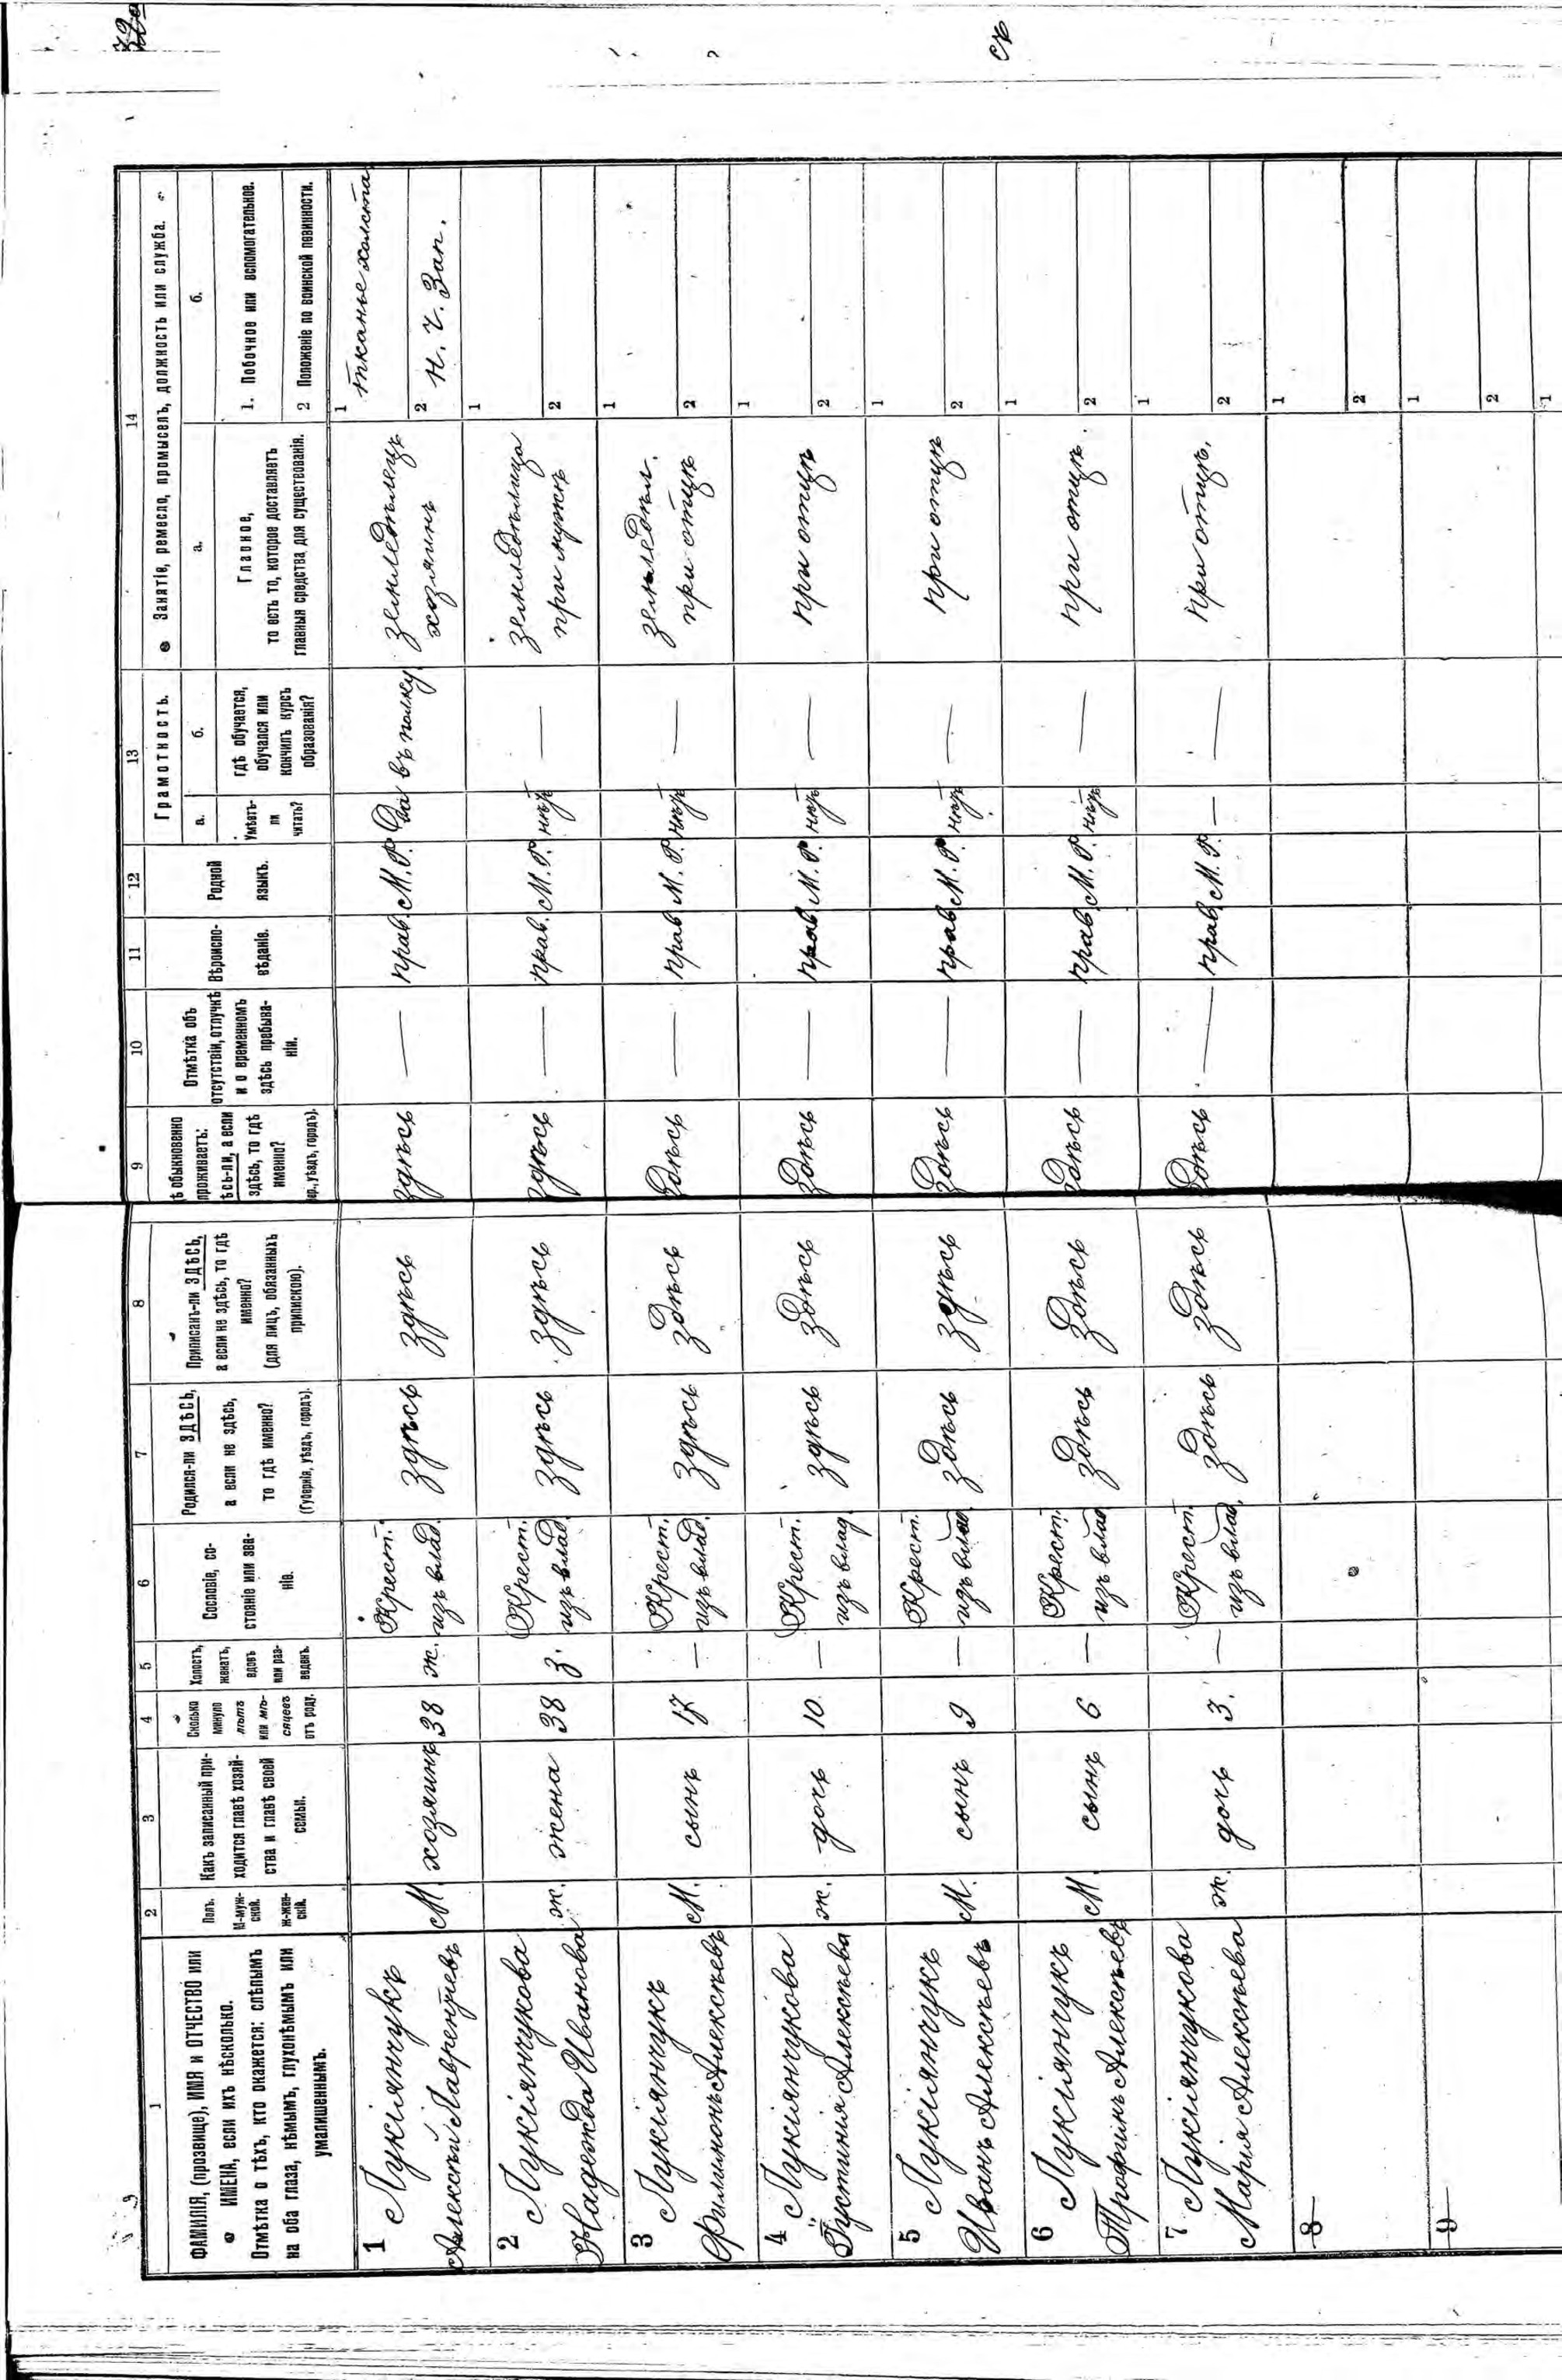 72
1
ФАМИЛІЯ, (прозвище), ИМЯ и ОТЧЕСТВО или
ИМЕНА, если ихъ нѣсколько.
Отмѣтка о тѣхъ, кто окажется: слѣпымъ
на оба глаза, нѣмымъ, глухонѣмымъ или
умалишеннымъ.
2
Полъ.
М-муж-
ской.
Ж-жен-
скій.
3
Какъ записанный при-
ходится главѣ хозяй-
ства и главѣ своей
семьи.
4
Сколько
минуло
лѣтъ
или мѣ-
сяцевъ
отъ роду.
5
Холостъ,
женатъ,
вдовъ
или раз-
веденъ.
6
Сословіе, со-
стояніе или зва-
ніе.
7
Родился-ли ЗДѢСЬ,
а если не здѣсь,
то гдѣ именно?
(Губернія, уѣздъ, городъ).
8
Приписанъ-ли ЗДѢСЬ,
а если не здѣсь, то гдѣ
именно?
(для лицъ, обязанныхъ
припискою).
9
ѣ обыкновенно
проживаетъ:
ѣсь-ли, а если
здѣсь, то гдѣ
именно?
ер., уѣздъ, городъ).
10
Отмѣтка объ
отсутствіи, отлучкѣ
и о временномъ
здѣсь пребыва-
ніи.
11
Вѣроиспо-
вѣданіе.
12
Родной
языкъ.
13
Грамотность.
а.
Умѣетъ-
ли
читать?
б.
гдѣ обучается,
обучался или
кончилъ курсъ
образованія?
14
Занятіе, ремесло, промыселъ, должность или служба.
а.
Главное,
то есть то, которое доставляетъ
главныя средства для существованія.
б.
1. Побочное или вспомогательное.
2 Положеніе по воинской повинности.
1 Лукіянчукъ
Алексѣй Лаврентьевъ М. хозяинъ 38 ж. Крест. изъ влад. здѣсь здѣсь здѣсь — прав. М.Р. Да въ полку земледѣлецъ хозяинъ 1 тканье холста 2 н. ч. Зап.
2 Лукіянчукова
Надежда Иванова ж. жена 38 з. Крест. изъ влад. здѣсь здѣсь здѣсь — прав. М.Р. нѣтъ — земледѣлица при мужѣ 1 2
3 Лукіянчукъ
Филимонъ Алексѣевъ М. сынъ — Крест. изъ влад. здѣсь здѣсь здѣсь — прав М.Р. нѣтъ — земледѣл. при отцѣ 1 2
4 Лукіянчукова
Густинія Алексѣева ж. дочь 10 — Крест. изъ влад здѣсь здѣсь здѣсь — прав. М.Р. нѣтъ — при отцѣ 1 2
5 Лукіянчукъ
Иванъ Алексѣевъ М. сынъ 9 — Крест. изъ влад здѣсь здѣсь здѣсь — прав. М.Р. нѣтъ — при отцѣ 1 2
6 Лукіянчукъ
Трофимъ Алексѣевъ М. сынъ 6 — Крест. изъ влад здѣсь здѣсь здѣсь — прав. М.Р. нѣтъ — при отцѣ. 1 2
7 Лукіянчукова
Марія Алексѣева ж. дочь 3. — Крест. изъ влад. здѣсь здѣсь здѣсь — прав. М.Р. — — при отцѣ. 1 2
8 1 2
9 1 2
1